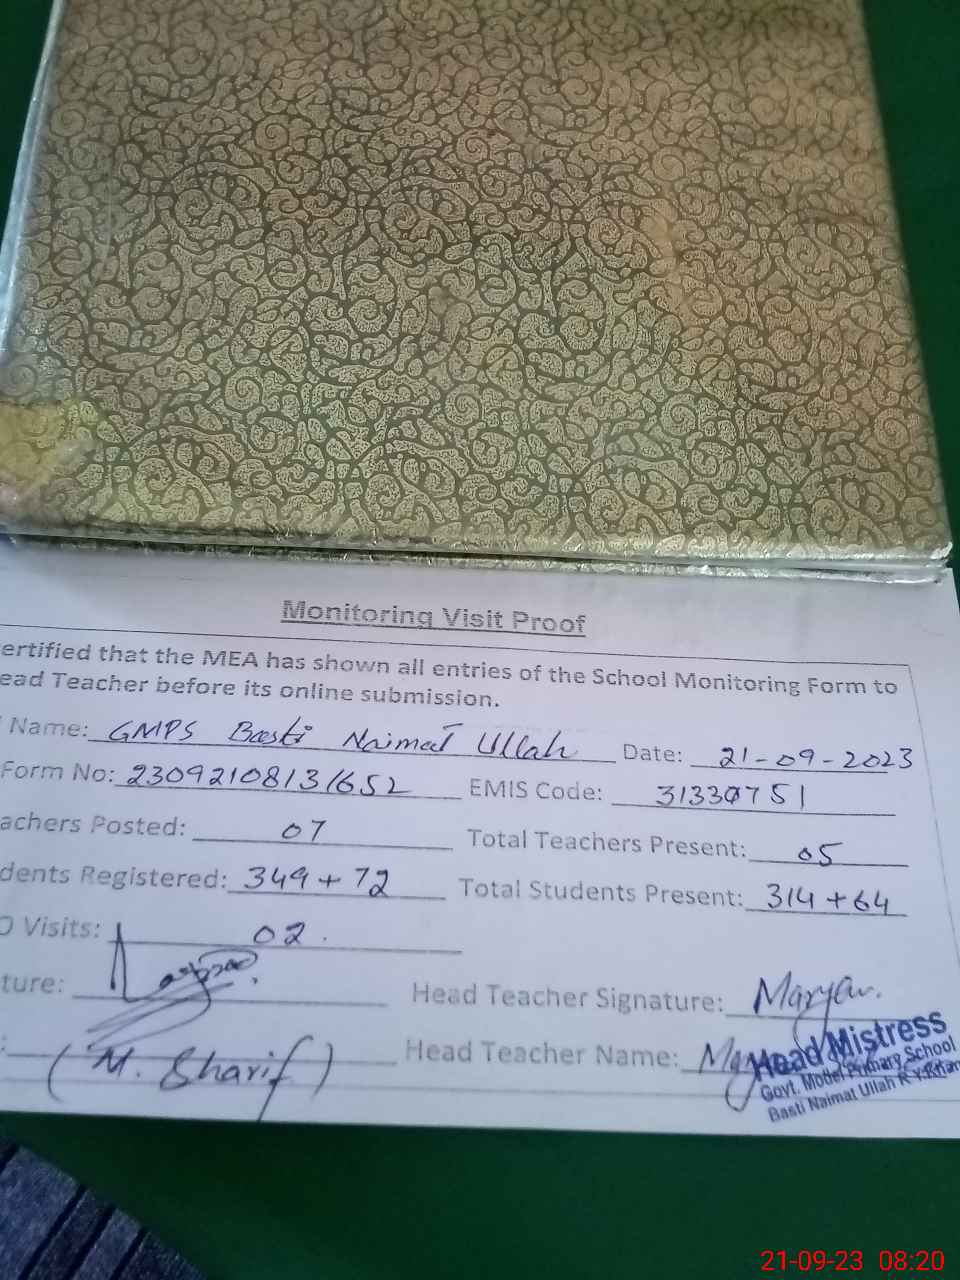 Monitoring Visit Proof
ertified that the MEA has shown all entries of the School Monitoring Form to
ead Teacher before its online submission.
Name: GMPS Basti Naimat Ullah Date: 21-09-2023
Form No: 23092108131652 EMIS Code: 31330751
achers Posted: 07 Total Teachers Present: 05
dents Registered: 349+72 Total Students Present: 314+64
O Visits: 02.
ture: Head Teacher Signature: Maryam.
: (M. Sharif) Head Teacher Name:
Head Mistress
Govt. Model Primary School
Basti Naimat Ullah R.Y.Khan
21-09-23 08:20